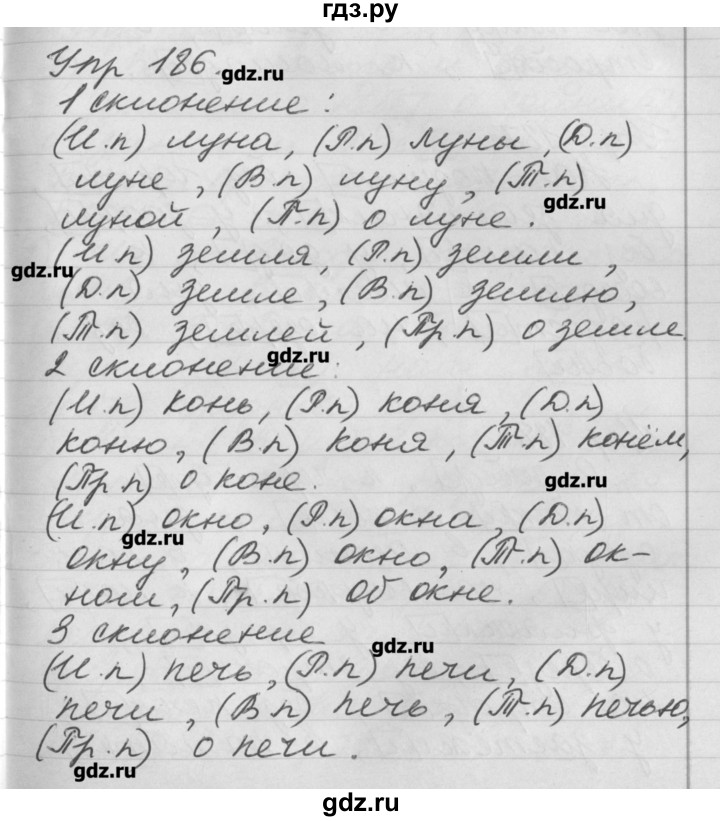 гдз.ру
Упр 186.
gdz.ru
1 склонение:
(И.п) луна, (Р.п) луны, (Д.п)
луне, (В.п) луну, (Т.п)
gdz.ru
луной, (П.п) о луне.
(И.п) земля, (Р.п) земли,
gdz.ru
(Д.п) земле, (В.п) землю,
(Т.п) землей, (Пр.п) о земле.
gdz.ru
2 склонение:
(И.п) конь, (Р.п) коня, (Д.п)
коню, (В.п) коня, (Т.п) конём,
(Пр.п) о коне.
gdz.ru
(И.п) окно, (Р.п) окна, (Д.п)
gdz.ru
окну, (В.п) окно, (Т.п) ок-
ном, (Пр.п) об окне.
3 склонение
gdz.ru
(И.п) печь, (Р.п) печи, (Д.п)
печи, (В.п) печь, (Т.п) печью,
(Пр.п) о печи.
gdz.ru
gdz.ru